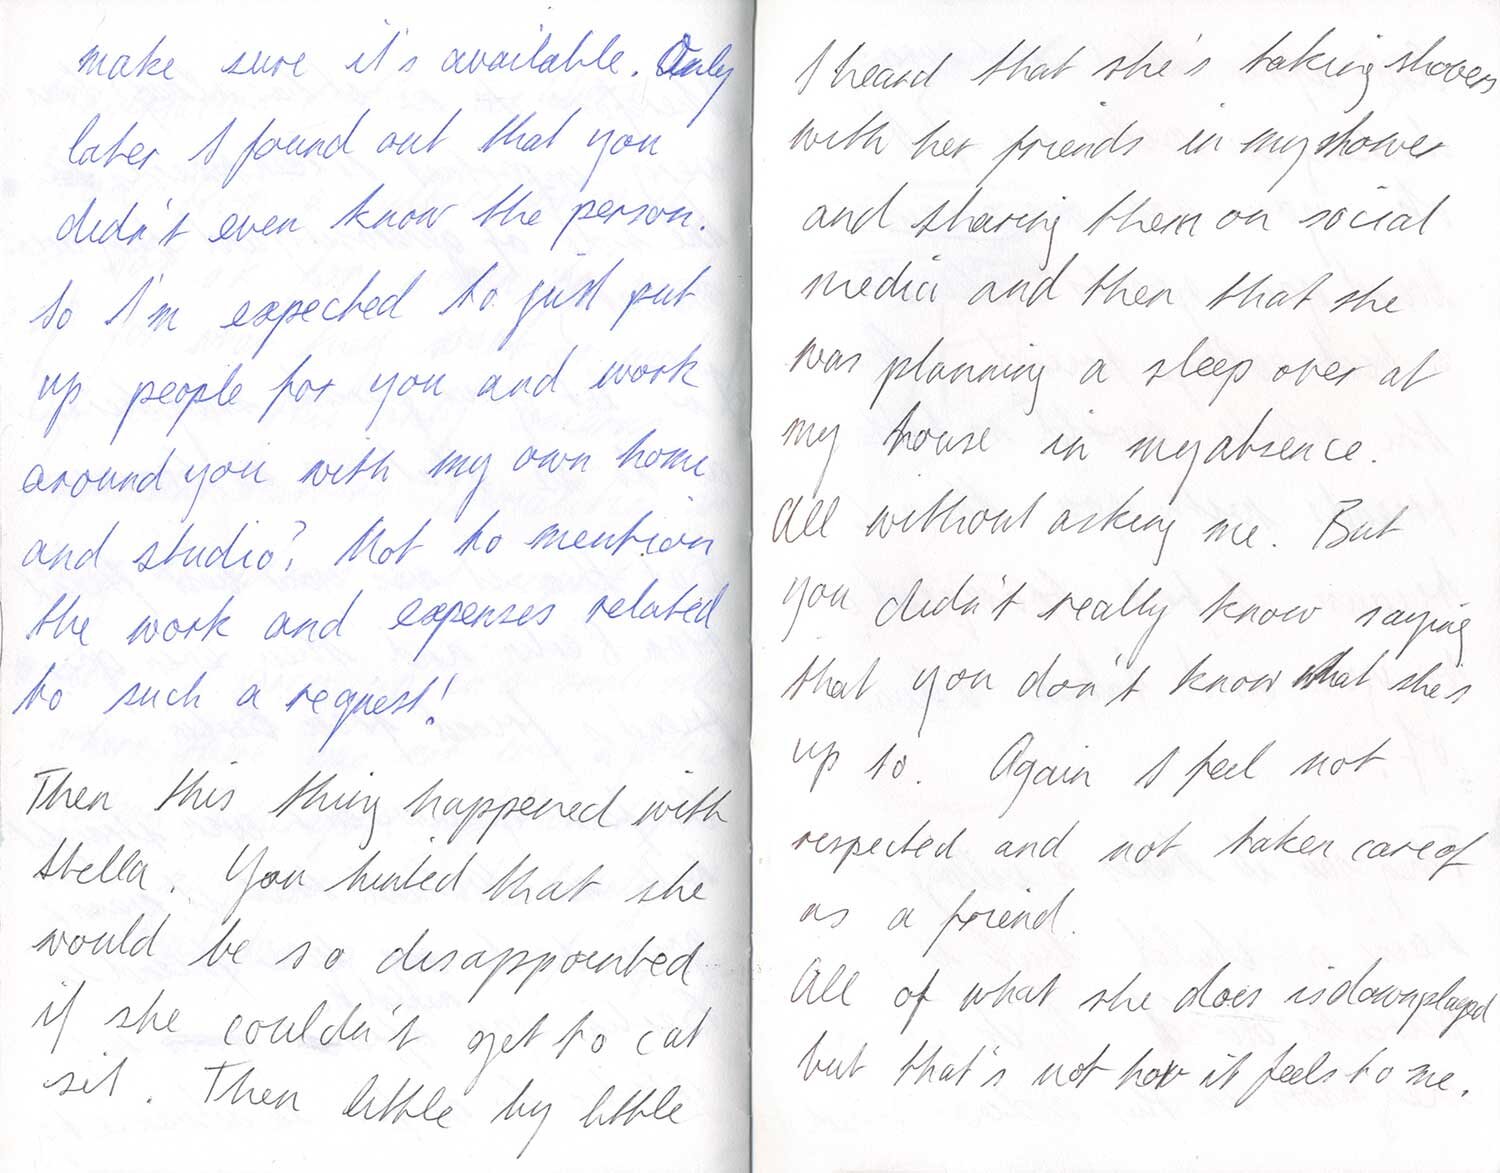 make sure it's available. Only
later I found out that you
didn't even know the person.
So I'm expected to just put
up people for you and work
around you with my own home
and studio? Not to mention
the work and expenses related
to such a request!
Then this thing happened with
Stella. You hinted that she
would be so disappointed
if she couldn't get to cat
sit. Then little by little
I heard that she's taking showers
with her friends in my shower
and sharing them on social
media and then that she
was planning a sleep over at
my house in my absence.
All without asking me. But
you didn't really know saying
that you don't know what she's
up to. Again I feel not
respected and not taken care of
as a friend.
All of what she does is downplayed
but that's not how it feels to me.